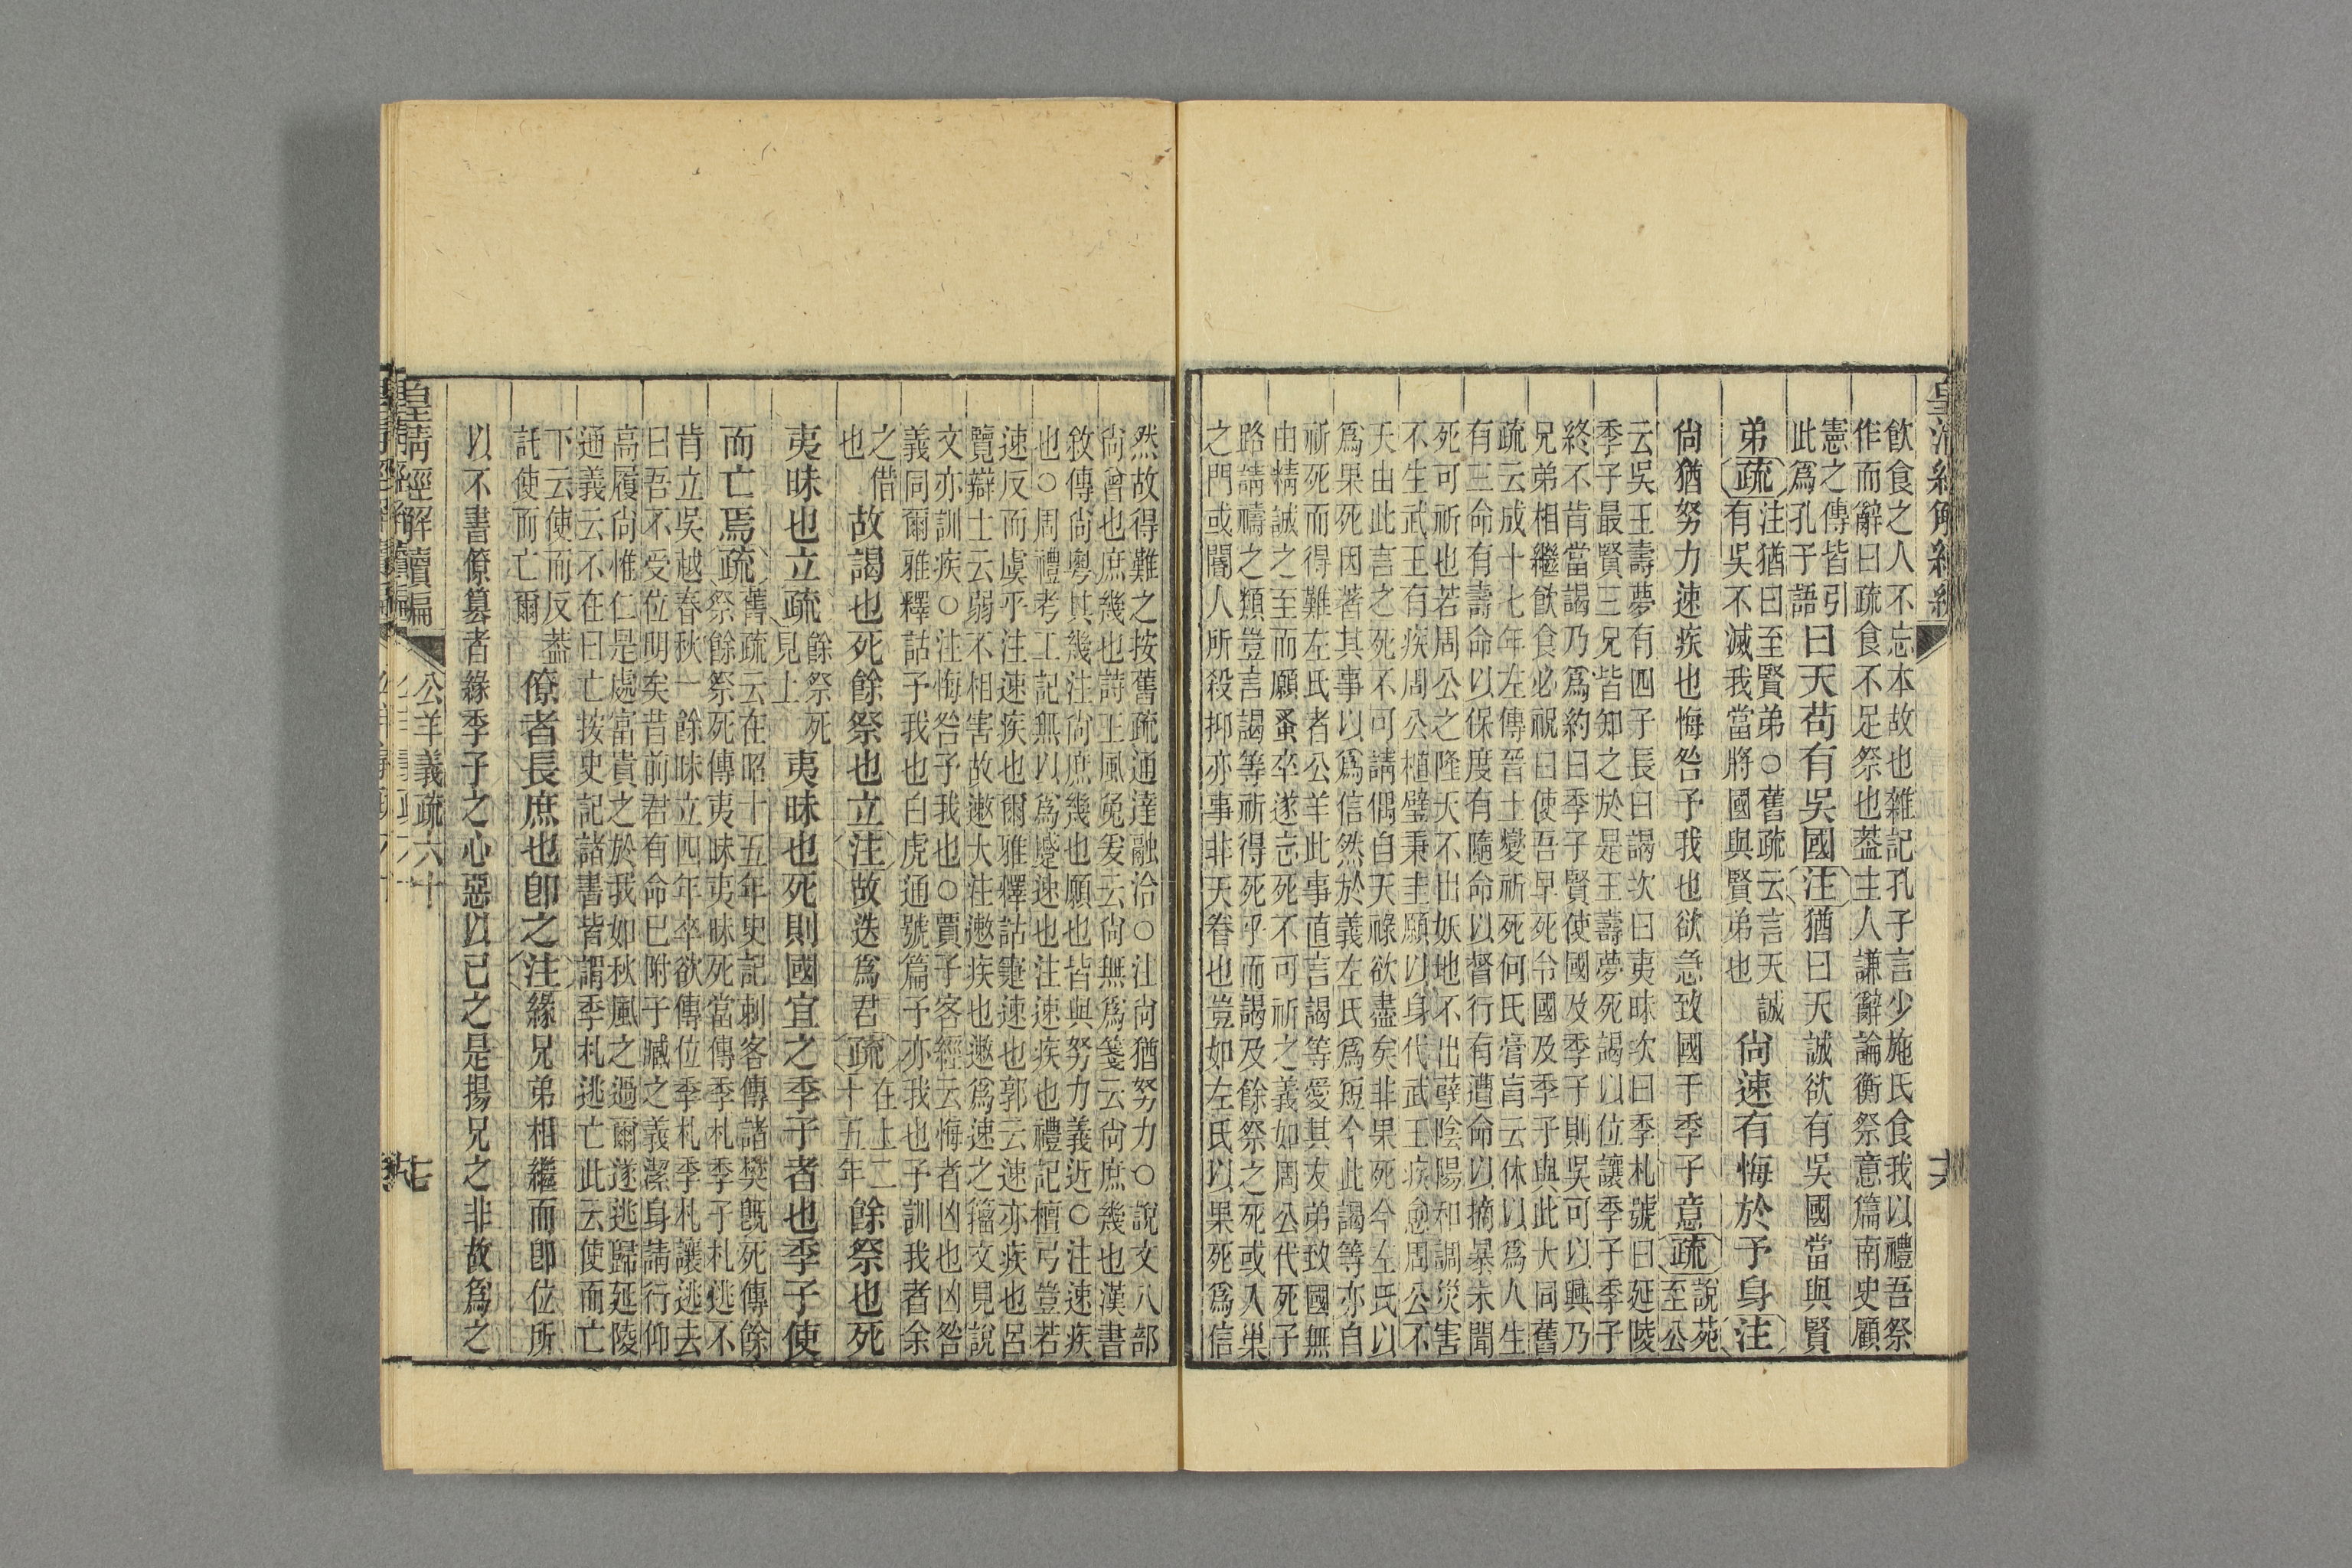 飲食之人不忘本故也雜記孔子言少施氏食我以禮吾祭
作而辭曰疏食不足祭也葢主人謙辭論衡祭意篇南史顧
憲之傳皆引
此爲孔子語
曰天苟有吳國注猶曰天誠欲有吳國當與賢
弟疏
注猶曰至賢弟○舊疏云言天誠
有吳不滅我當將國與賢弟也
尙速有悔於予身注
尙猶努力速疾也悔咎予我也欲急致國于季子意疏
說苑
至公
云吳王壽夢有四子長曰謁次曰夷昧次曰季札號曰延陵
季子最賢三兄皆知之於是王壽夢死謁以位讓季子季子
終不肯當謁乃爲約曰季子賢使國及季子則吳可以興乃
兄弟相繼飮食必祝曰使吾早死令國及季子與此大同舊
疏云成十七年左傳晉士燮祈死何氏膏肓云休以爲人生
有三命有壽命以保度有隨命以督行有遭命以摘暴未聞
死可祈也若周公之隆天不出妖地不出孽陰陽和調災害
不生武王有疾周公植璧秉圭願以身代武王疾愈周公不
夭由此言之死不可請偶自天祿欲盡矣非果死今左氏以
爲果死因著其事以爲信然於義左氏爲短今此謁等亦自
祈死而得難左氏者公羊此事直言謁等愛其友弟致國無
由精誠之至而願蚤卒遂忘死不可祈之義如周公代死子
路請禱之類豈言謁等祈得死乎而謁及餘祭之死或入巢
之門或閽人所殺抑亦事非天眷也豈如左氏以果死爲信
然故得難之按舊疏通達融洽○注尙猶努力○說文八部
尙曾也庶幾也詩王風兔爰云尙無爲箋云尙庶幾也漢書
敘傳尙粵其幾注尙庶幾也願也皆與努力義近○注速疾
也○周禮考工記無以爲戚速也注速疾也禮記檀弓豈若
速反而虞乎注速疾也爾雅釋詁寁速也郭云速亦疾也呂
覽辯士云弱不相害故遬大注遬疾也遬爲速之籀文見說
文亦訓疾○注悔咎予我也○賈子容經云悔者凶也凶咎
義同爾雅釋詁予我也白虎通號篇予亦我也予訓我者余
之借
也
故謁也死餘祭也立注故迭爲君疏
在上二
十五年
餘祭也死
夷昧也立疏
餘祭死
見上
夷昧也死則國宜之季子者也季子使
而亡焉疏
舊疏云在昭十五年史記刺客傳諸樊旣死傳餘
祭餘祭死傳夷昧夷昧死當傳季札季子札逃不
肯立吳越春秋一餘昧立四年卒欲傳位季札季札讓逃去
曰吾不受位明矣昔前君有命已附子臧之義潔身請行仰
高履尙惟仁是處富貴之於我如秋風之過爾遂逃歸延陵
通義云不在曰亡按史記諸書皆謂季札逃亡此云使而亡
下云使而反葢
託使而亡爾
僚者長庶也卽之注緣兄弟相繼而卽位所
以不書僚篡者緣季子之心惡以已之是揚兄之非故爲之
皇淸經解續編
公羊義疏六十
七